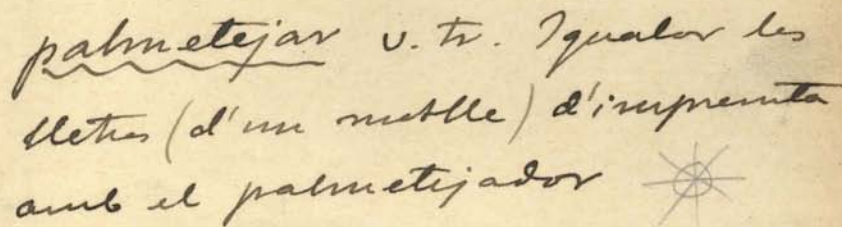 palmetejar v. tr. Igualar les
lletres (d'un motlle) d'impremta
amb el palmetejador